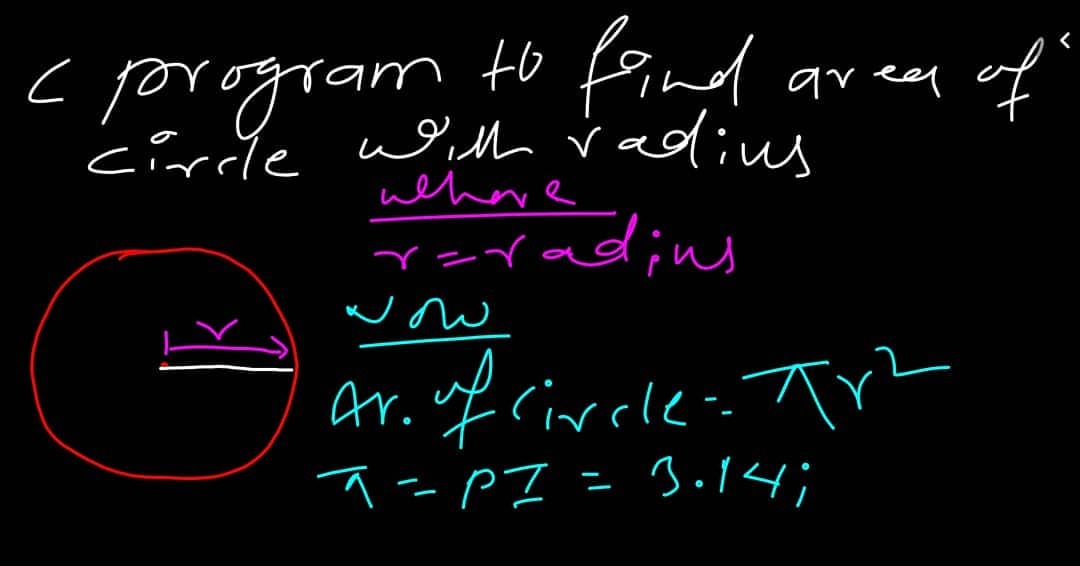 C program to find area of
circle with radius
where
r = radius
r
Now
Ar. of circle = πr²
π = PI = 3.14;